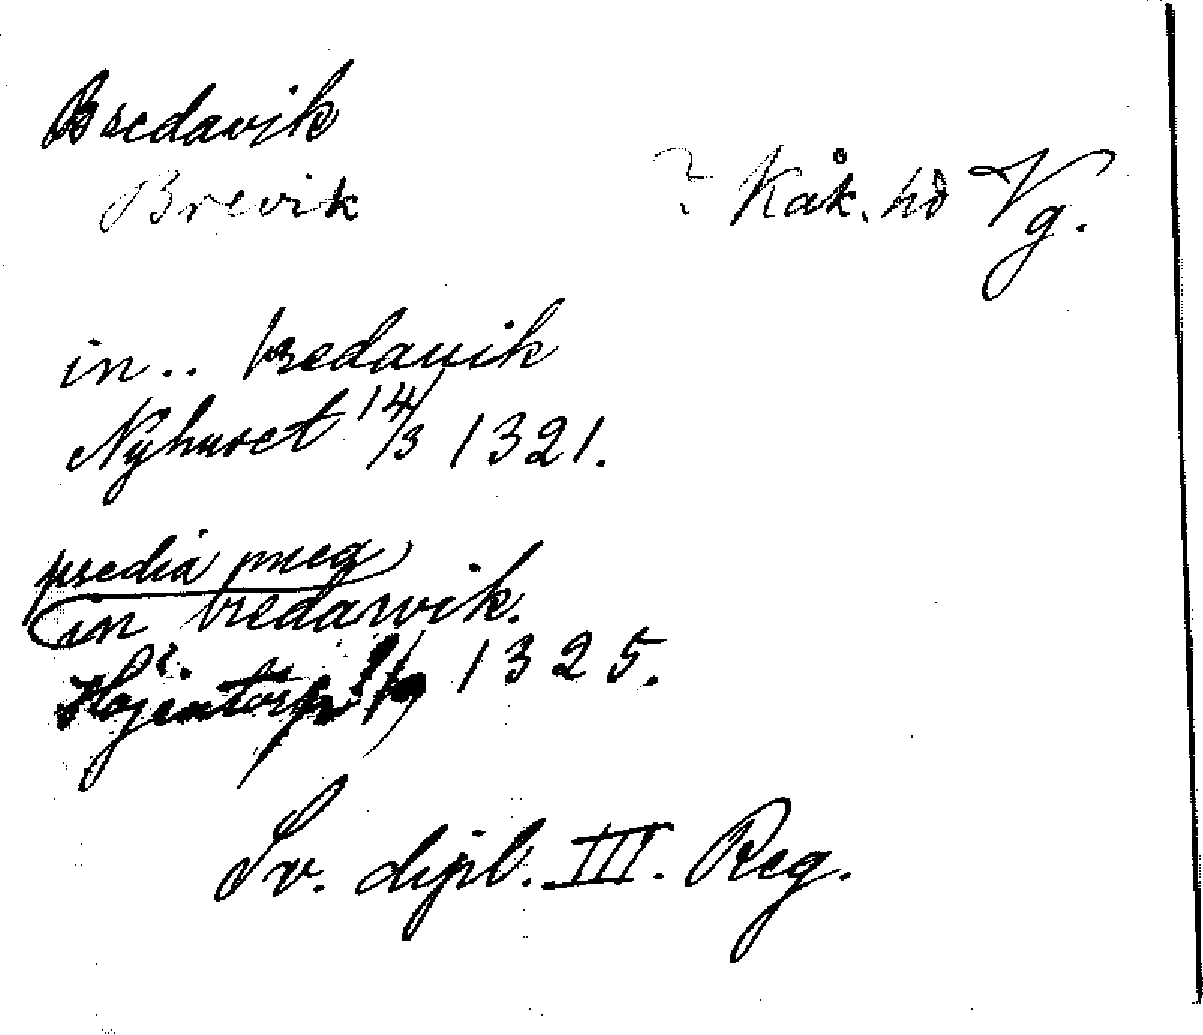 Bredavik
Brevik
? Kåk. hd Vg.
in.. bredauik
Nyhuset 14/3 1321.
predia mea
in bredawik.
Höjentorp 1325.
Sv. dipl. III. Reg.